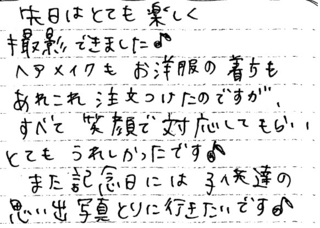 先日はとても楽しく
撮影できました♪
ヘアメイクも お洋服の着ちも
あれこれ注文つけたのですが、
すべて笑顔で対応してもらい
とてもうれしかったです♪
また記念日には子供達の
思い出写真とりに行きたいです♪